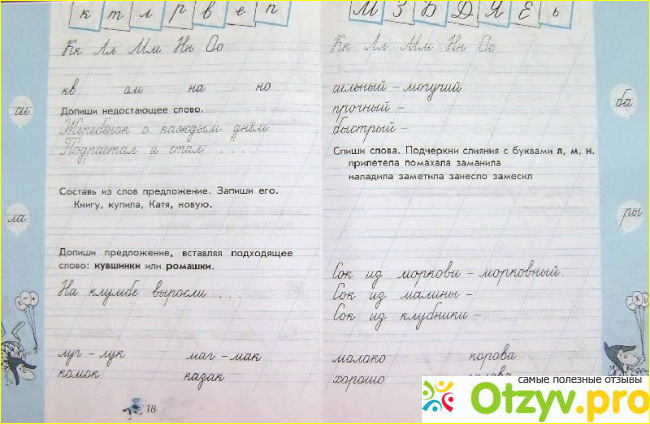 к т л р в е п
Кк Лл Мм Нн Оо
кв ом на но
Допиши недостающее слово.
Жеребёнок с каждым днём
Подрастал и стал . . .
Составь из слов предложение. Запиши его.
Книгу, купила, Катя, новую.
Допиши предложение, вставляя подходящее
слово: кувшинки или ромашки.
На клумбе выросли . . .
луг – лук маг – мак
комок казак
18
ла
М З Б Д Я Ё ь
Кк Лл Мм Нн Оо
сильный – могучий
прочный –
быстрый –
Спиши слова. Подчеркни слияния с буквами л, м, н.
прилетела помахала заманила
наладила заметила занесло замесил
Сок из моркови – морковный.
Сок из малины –
Сок из клубники –
молоко корова
хорошо
ба
ры
самые полезные отзывы
Otzyv.pro